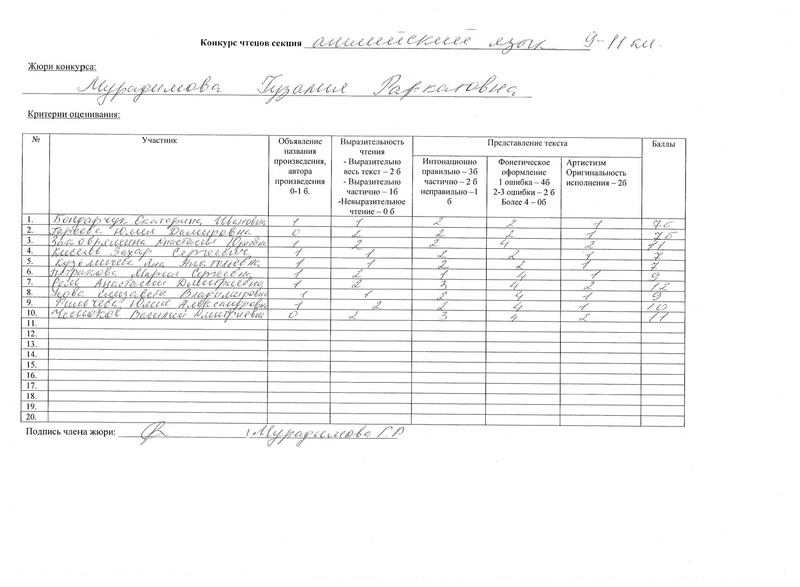 Конкурс чтецов секция английский язык 9-11 кл.
Жюри конкурса:
Мурадимова Гузалия Раркатовна
Критерии оценивания:
№ Участник Объявление названия произведения, автора произведения 0-1 б. Выразительность чтения - Выразительно весь текст – 2 б - Выразительно частично – 1б -Невыразительное чтение – 0 б Представление текста Баллы
Интонационно правильно – 3б частично – 2 б неправильно –1 б Фонетическое оформление 1 ошибка – 4б 2-3 ошибки – 2 б Более 4 – 0б Артистизм Оригинальность исполнения – 2б
1. Бондарчук Екатерина Ивановна 1 1 2 2 1 7б
2. Юлия Дамировна 0 2 2 2 1 7б
3. Анастасия 1 2 2 4 2 11
4. Киселев Захар Сергеевич 1 1 2 2 1 7
5. Кузьмичева Яна Анатольевна 1 1 2 2 1 7
6. Петракова Мария Сергеевна 1 2 1 4 1 9
7. Анастасия Дмитриевна 1 2 3 4 2 12
8. Елизавета Владимировна 1 1 2 4 1 9
9. Юлия Александровна 1 2 2 4 1 10
10. Чесноков Василий Дмитриевич 0 2 3 4 2 11
11.
12.
13.
14.
15.
16.
17.
18.
19.
20.
Подпись члена жюри: / Мурадимова Г.Р